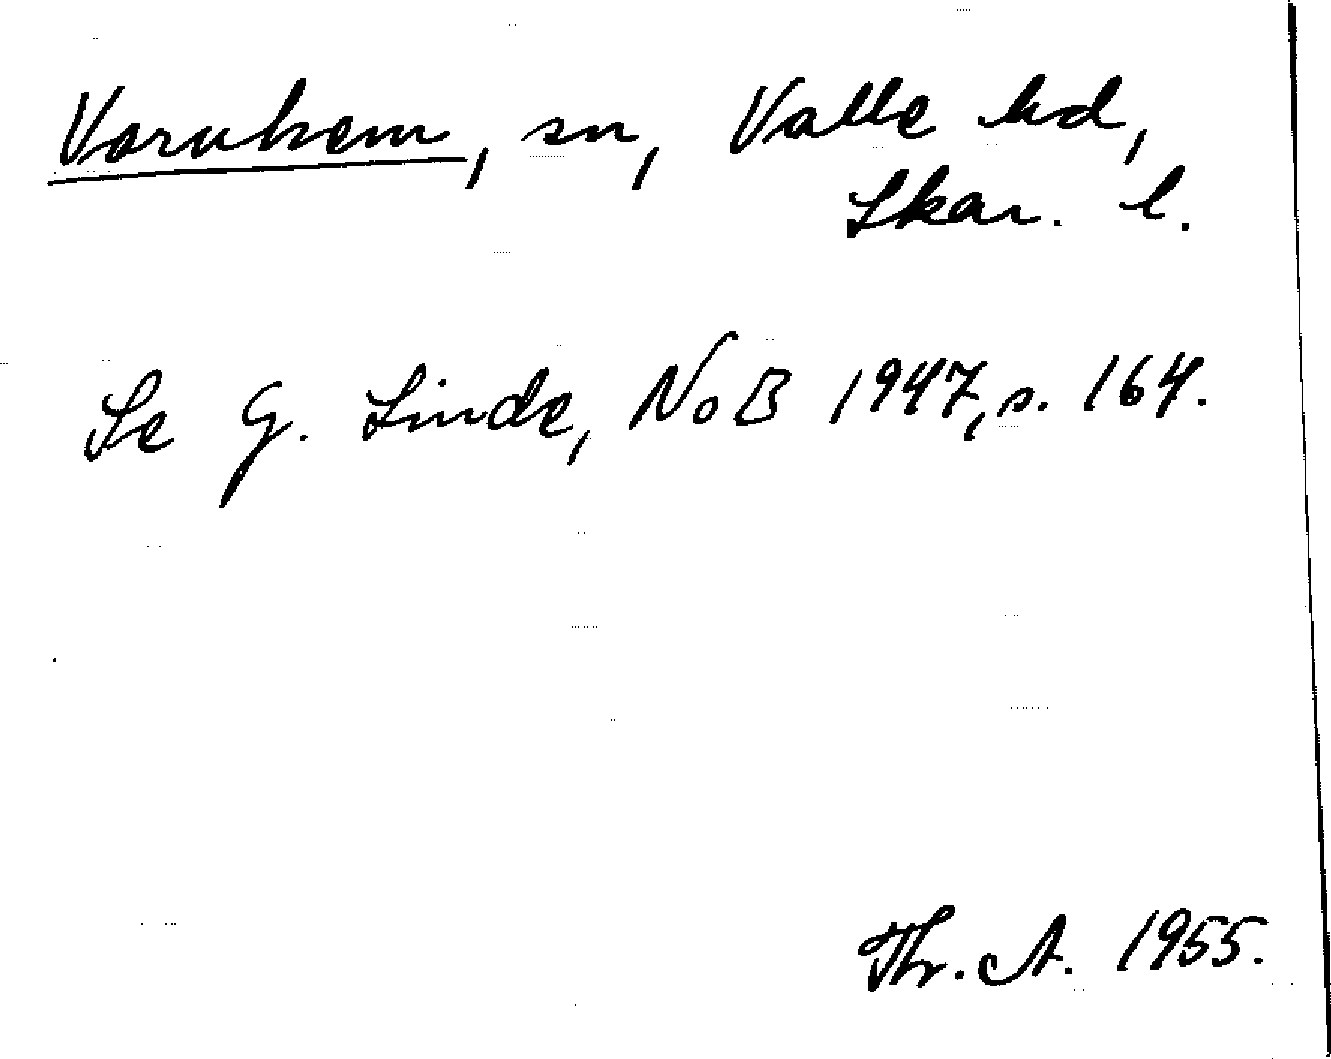 Varnhem, sn, Valle hd,
Skar. l.
Se G. Linde, NoB 1947, s. 164.
Thr. A. 1955.